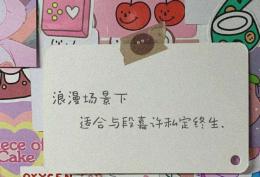 浪漫场景下
适合与段嘉许私定终生.
iece of
Cake
OXYGEN